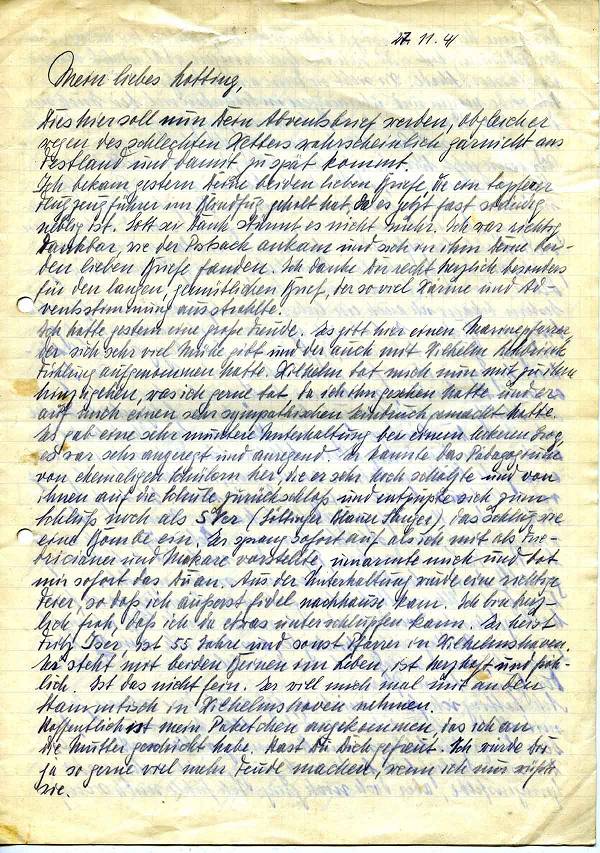 27. 11. 41
Mein liebes Lotting,
Dies hier soll nun Dein Adventsbrief werden, obgleich er
wegen des schlechten Wetters wahrscheinlich garnicht ans
Festland und damit zu spät kommt.
Ich bekam gestern Deine beiden lieben Briefe, die ein tapferer
Flugzeugführer im Blindflug geholt hat, da es jetzt fast ständig
neblig ist. Gott sei Dank stürmt es nicht mehr. Ich war richtig
dankbar, wie der Postsack ankam und sich in ihm Deine bei-
den lieben Briefe fanden. Ich danke Dir recht herzlich besonders
für den langen, gemütlichen Brief, der so viel Wärme und Ad-
ventsstimmung ausstrahlte.
Ich hatte gestern eine große Freude. Es gibt hier einen Marinepfarrer
der sich sehr viel Mühe gibt und der auch mit Wilhelm
Fühlung aufgenommen hatte. Wilhelm bat mich nun mit zu ihm
hinzugehen, was ich gerne tat, da ich ihn gesehen hatte und er
auf mich einen sehr sympathischen Eindruck gemacht hatte.
Es gab eine sehr muntere Unterhaltung bei einem leckeren Grog,
es war sehr angeregt und anregend. Er kannte das Pädagogium
von ehemaligen Schülern her, die er sehr hoch schätzte und von
ihnen auf die Schule zurückschloß und entpuppte sich zum
Schluß noch als S.Ver (Göttinger Blauer Sänger), das schlug wie
eine Bombe ein. Er sprang sofort auf als ich mit als Frie-
dricianer und Makare vorstellte, umarmte mich und bot
mir sofort das Du an. Aus der Unterhaltung wurde eine richtige
Feier, so daß ich äußerst fidel nachhause kam. Ich bin herz-
lich froh, daß ich da etwas unterschlüpfen kann. Er heist
Fritz Iser, ist 55 Jahre und sonst Pfarrer in Wilhelmshaven.
Er steht mit beiden Beinen im Leben, ist herzhaft und fröh-
lich. Ist das nicht fein. Er will mich mal mit an den
Stammtisch in Wilhelmshaven nehmen.
Hoffentlich ist mein Paketchen angekommen, das ich an
die Mutter geschickt habe. Hast Du Dich gefreut. Ich würde Dir
ja so gerne viel mehr Freude machen, wenn ich nur wüßte
wie.